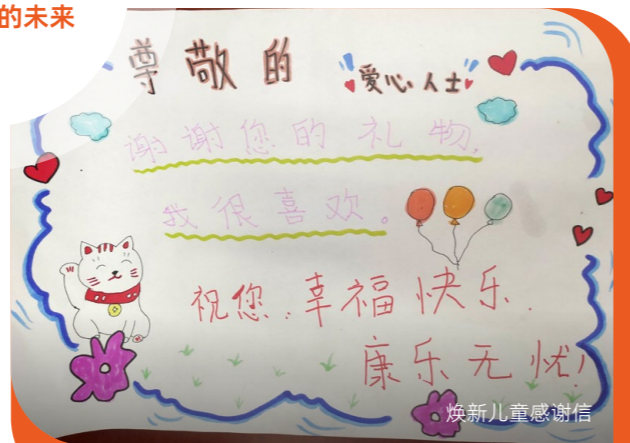 的未来
尊敬的"爱心人士"
谢谢您的礼物,
我很喜欢。
祝您:幸福快乐.
康乐无忧!
焕新儿童感谢信